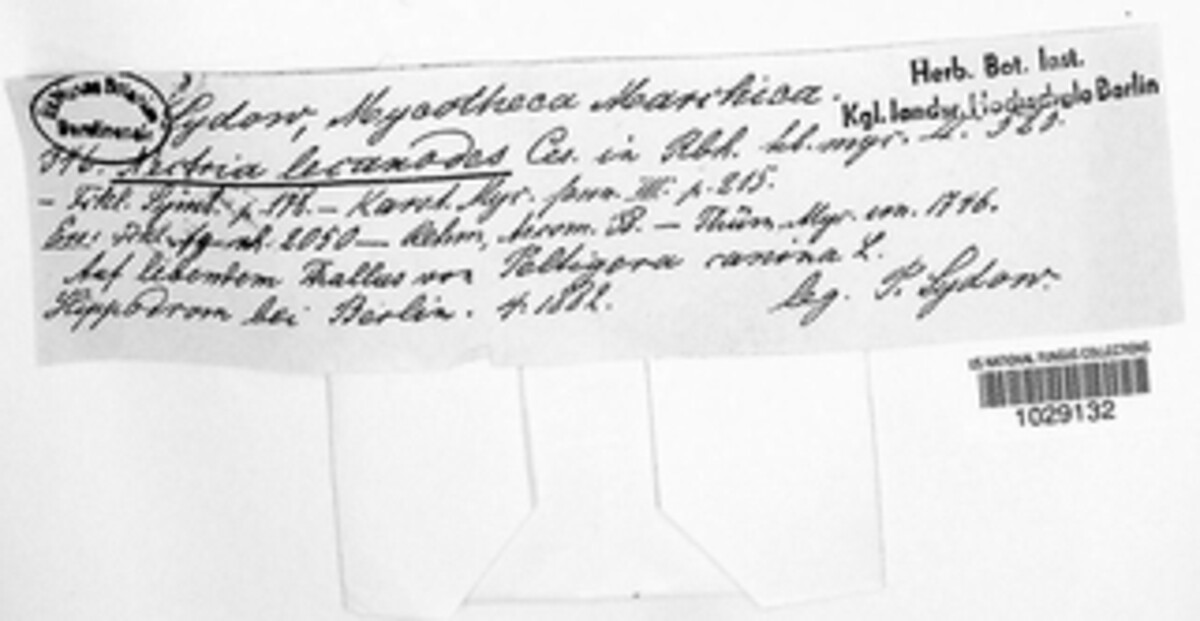 Sydow, Mycotheca Marchica.
Herb. Bot. Inst.
Kgl. landw. Hochschule Berlin
Nectria lecanodes Ces. in Rbh. hb. myc.
– Fckl. Symb. p. 178. – Karst. Myc. fenn. III. p. 215.
Exs: Fckl. fg. rh. 2050 – Rehm, Ascom. – Thüm. Myc. un. 1746.
Auf lebendem Thallus von Peltigera canina L.
Hippodrom bei Berlin. 4. 1882. leg. P. Sydow.
US NATIONAL FUNGUS COLLECTIONS
1029132